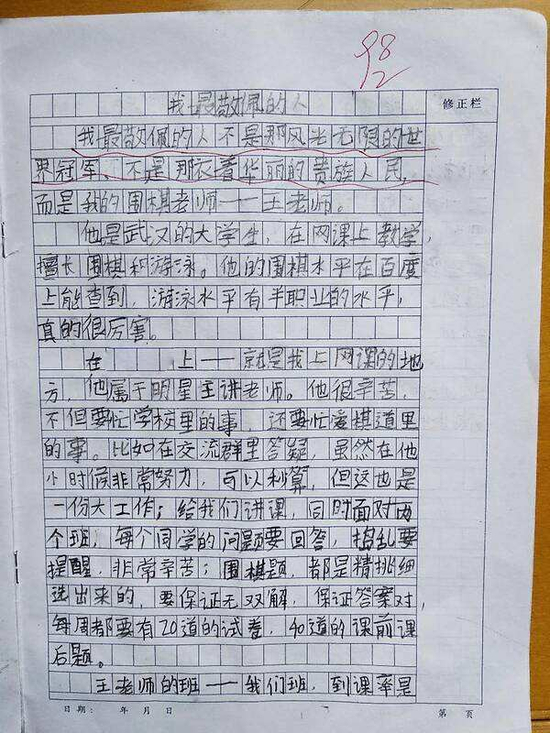 98
2
修正栏
我最敬佩的人
我最敬佩的人不是那风光无限的世
界冠军,不是那衣着华丽的贵族人民,
而是我的围棋老师——王老师。
他是武汉的大学生,在网课上教学,
擅长围棋和游泳。他的围棋水平在百度
上能查到,游泳水平有半职业的水平,
真的很厉害。
在 上——就是我上网课的地
方,他属于明星主讲老师。他很辛苦,
不但要忙学校里的事,还要忙爱棋道里
的事。比如在交流群里答疑,虽然在他
小时候非常努力,可以秒算,但这也是
一份大工作;给我们讲课,同时面对两
个班,每个同学的问题要回答,捣乱要
提醒,非常辛苦;围棋题,都是精挑细
选出来的,要保证无双解,保证答案对,
每周都要有20道的试卷,40道的课前课
后题。
王老师的班——我们班,到课率是
日期: 年 月 日 第 页